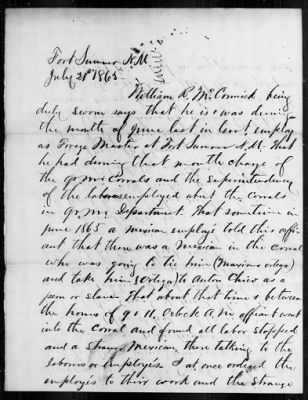 Fort Sumner N.M.
July 21st 1865
William R. McCormick being
duly sworn says that he is & was during
the month of June last in Govt employ
as Forage Master at Fort Sumner N.M. That
he had during that month charge of
the Qr Mr Corrals and the Superintendency
of the laborers employed about the corrals
in Qr Mrs Department. That sometime in
June 1865 a mexican employé told this affi-
ant that there was a Mexican in the corral
who was going to tie him (Mariano ortega)
and take him (Ortega) to Anton Chico as a
peon or slave. That about that time & between
the hours of 9 & 11, Oclock A.M. affiant went
into the corral and found all labor stopped
and a strange Mexican there talking to the
laborers or employés. I at once ordered the
employés to their work and the strange